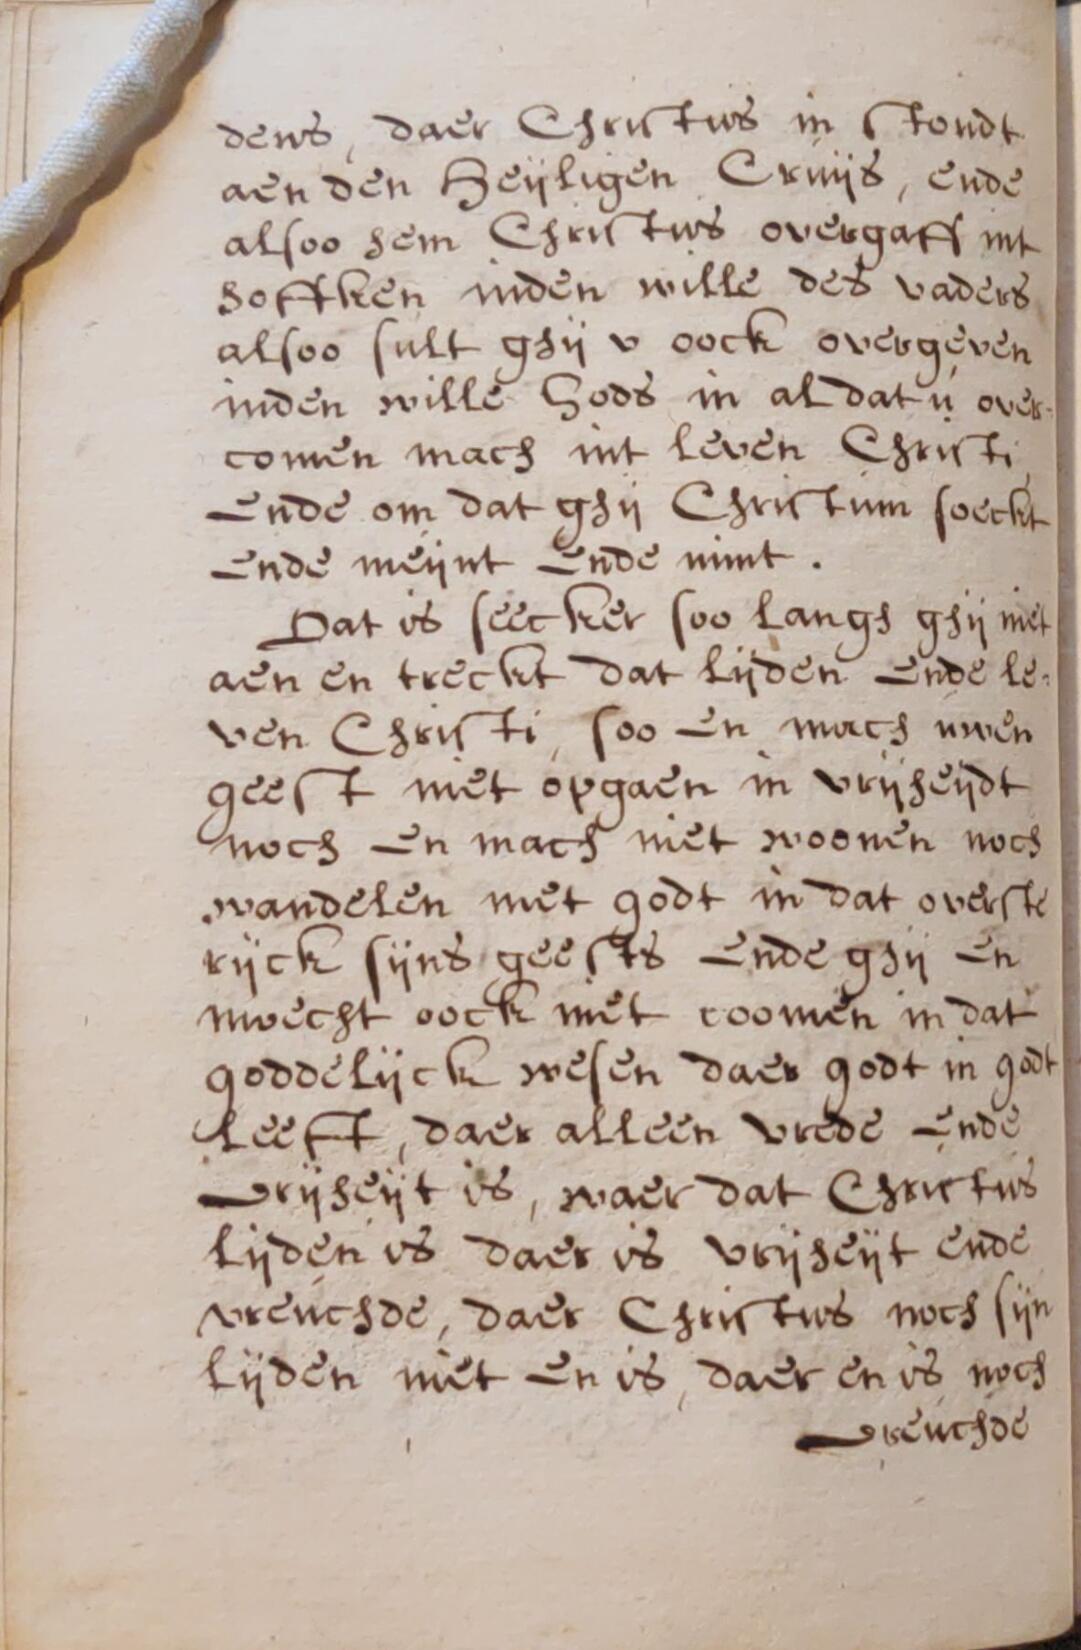 dens, daer Christus in stondt
aen den Heijligen Cruijs, ende
alsoo hem Christus overgaff int
hoffken inden wille des vaders
alsoo sult ghij v oock overgeven
inden wille Gods in al dat u over-
comen mach int leven Christi
Ende om dat ghij Christum soeckt
Ende meijnt Ende mint.
Dat is seecker soo langh ghij niet
aen en treckt dat lijden Ende le-
ven Christi, soo En mach uwen
geest niet opgaen in vrijheijdt
noch En mach niet woonen noch
wandelen met godt in dat overste
rijck sijns geests Ende ghij En
moecht oock niet coomen in dat
goddelijck wesen daer godt in godt
leeft, daer alleen vrede Ende
vrijheijt is, waer dat Christus
lijden is daer is vrijheijt ende
vreuchde, daer Christus noch sijn
lijden niet En is, daer en is noch
vreuchde